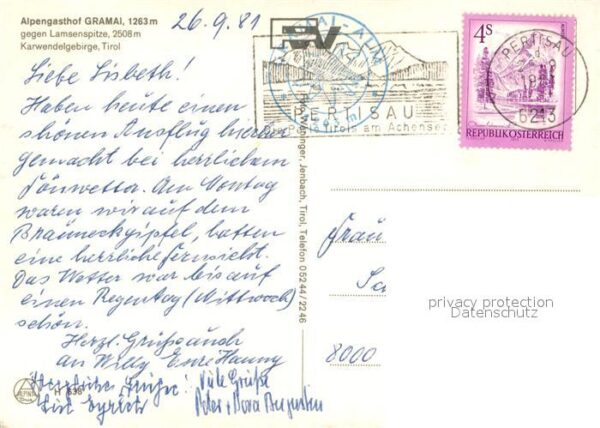 Alpengasthof GRAMAI, 1263 m
gegen Lamsenspitze, 2508 m
Karwendelgebirge, Tirol
26.9.81
Liebe Lisbeth!
Haben heute einen
schönen Ausflug hierher
gemacht bei herrlichem
Fönwetter. Am Montag
waren wir auf dem
Brauneckgipfel, hatten
eine herrliche Fernsicht.
Das Wetter war bis auf
einen Regentag (Mittwoch)
schön.
Herzl. Grüße auch
an Willy Eure Hanny
Herzliche Grüße!
Viele Grüße
Peter + Dora Augustin
H 636
GRAMAI-ALM
PERTISAU
Tirols am Achensee
PERTISAU
6213
4S
REPUBLIK ÖSTERREICH
Jenbach, Tirol, Telefon 05244/2246
Frau
8000
privacy protection
Datenschutz